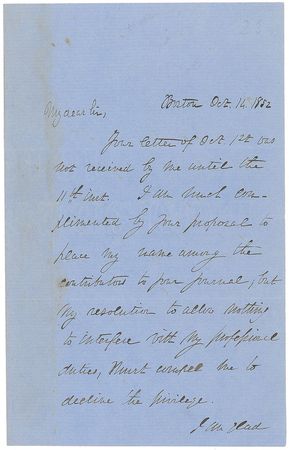 Boston Oct. 14. 1852
My dear Sir,
Your letter of Oct. 1st was
not received by me until the
11th inst. I am much com-
plimented by your proposal to
place my name among the
contributors to your journal; but
my resolution to allow nothing
to interfere with my professional
duties, must compel me to
decline the privilege.
I am glad